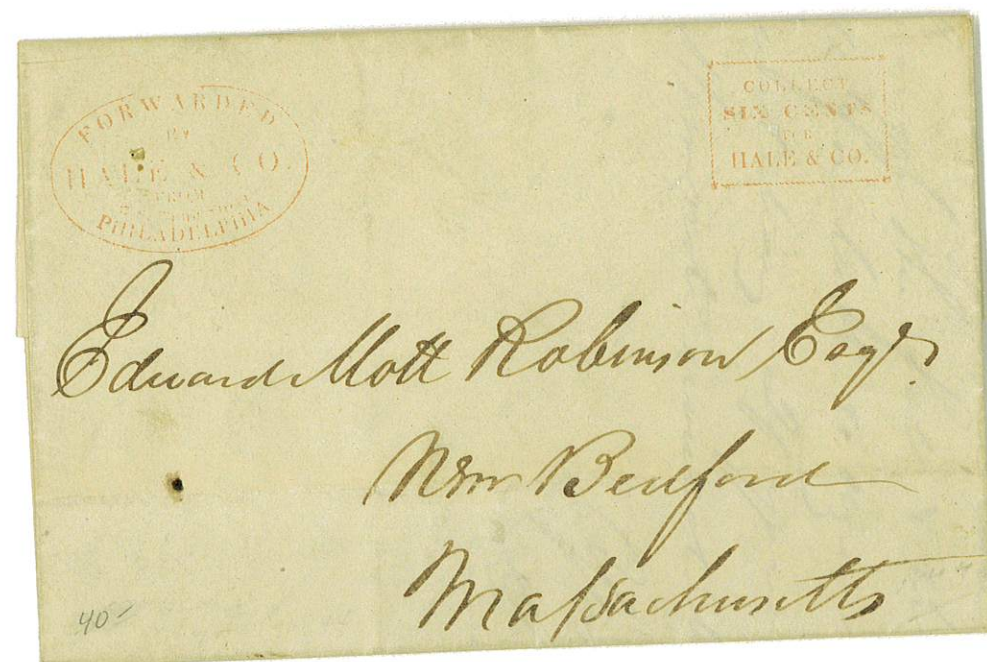 FORWARDED
BY
HALE & CO.
FROM
PHILADELPHIA
COLLECT
SIX CENTS
FOR
HALE & CO.
Edward Mott Robinson Esqr
New Bedford
Massachusetts
40-